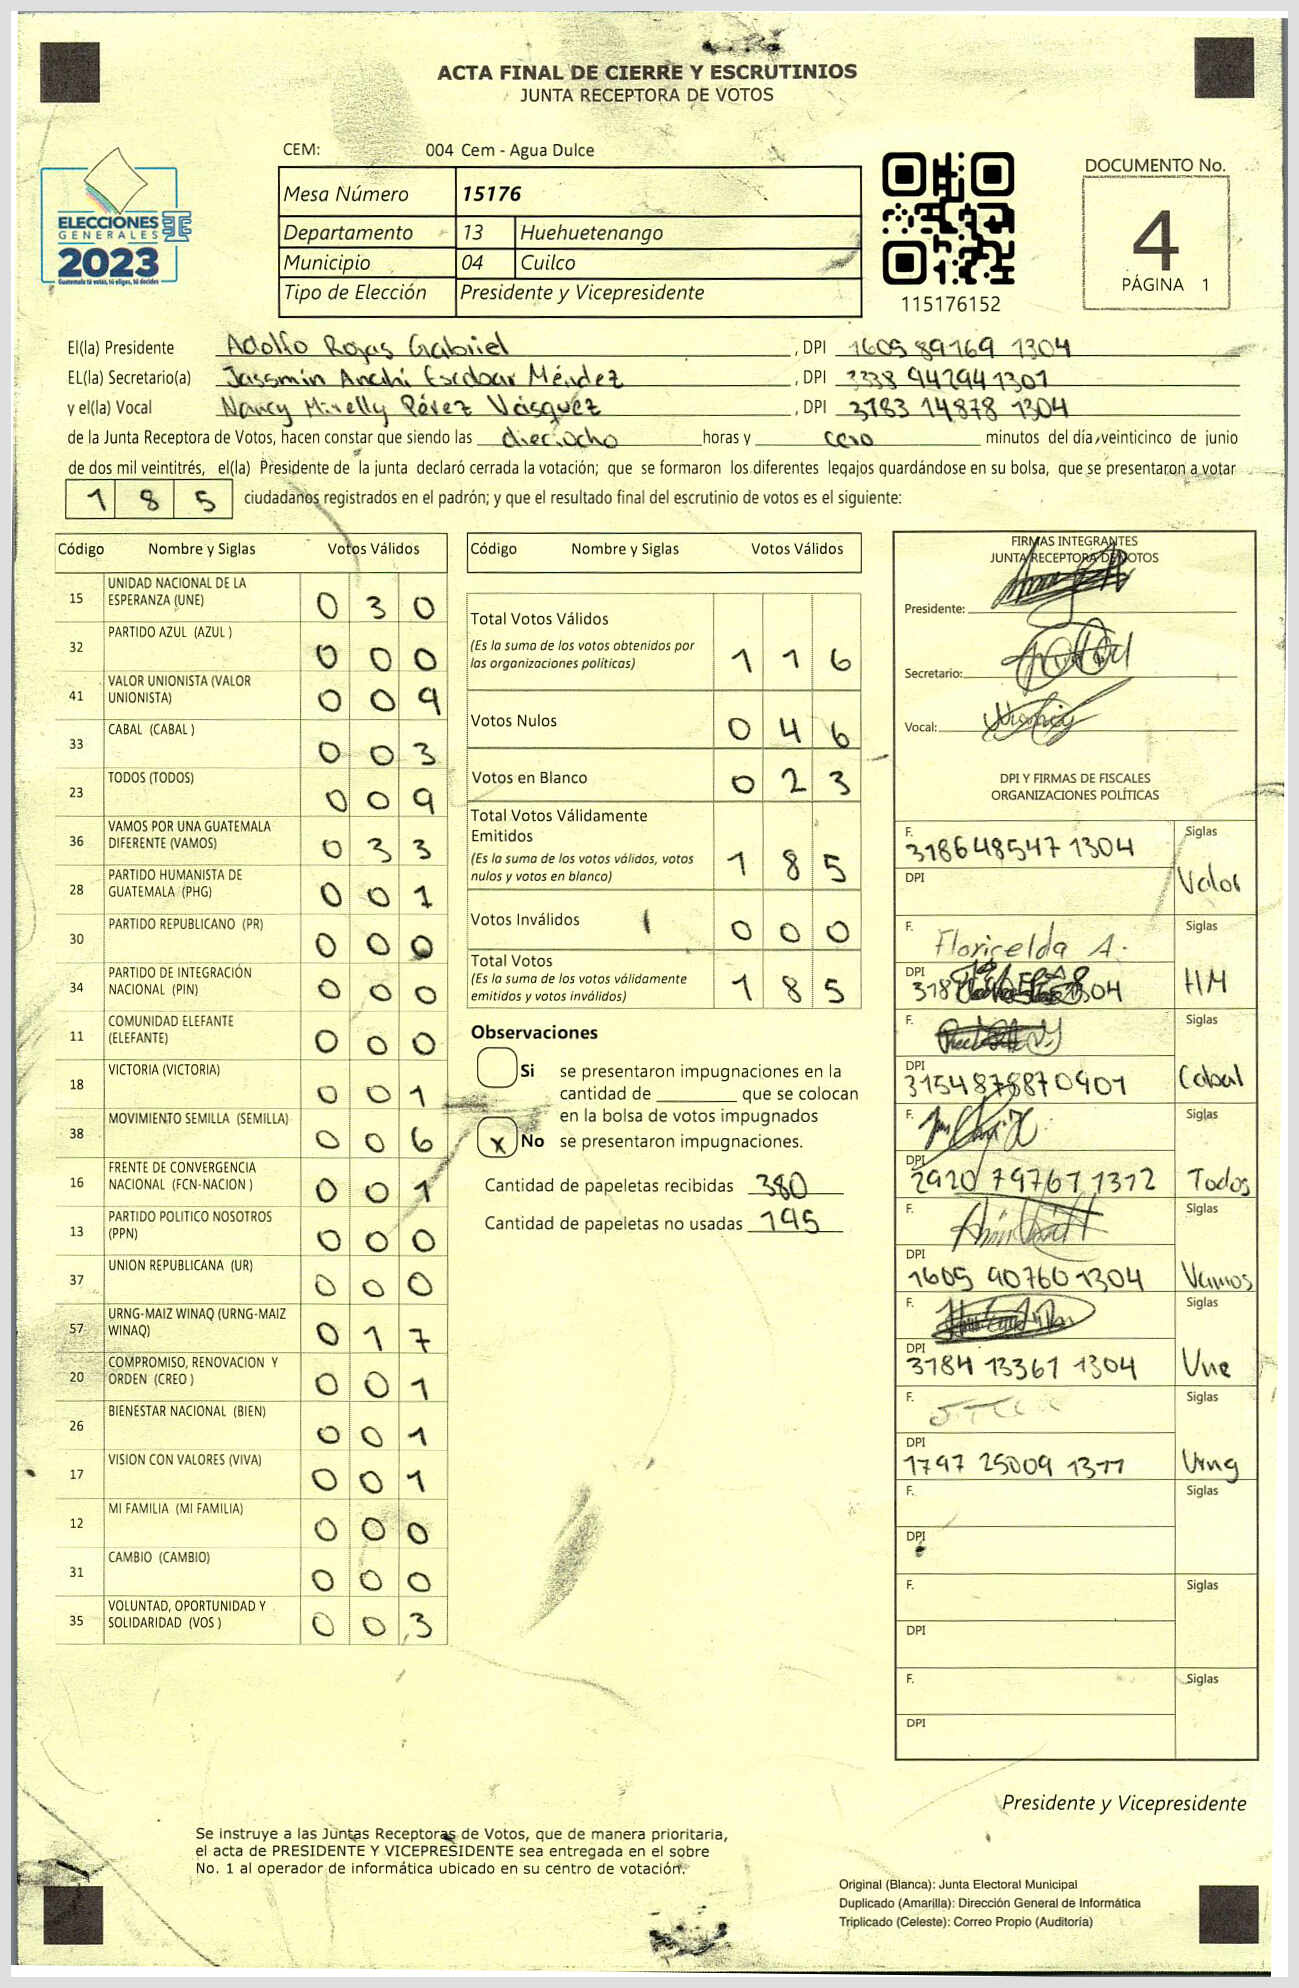 ACTA FINAL DE CIERRE Y ESCRUTINIOS
JUNTA RECEPTORA DE VOTOS
CEM: 004 Cem - Agua Dulce
Mesa Número 15176
Departamento 13 Huehuetenango
Municipio 04 Cuilco
Tipo de Elección Presidente y Vicepresidente
ELECCIONES
GENERALES
2023
Guatemala tú votas, tú eliges, tú decides
115176152
DOCUMENTO No.
4
PÁGINA 1
El(la) Presidente Adolfo Rojas Gabriel, DPI 1605 89169 1304
EL(la) Secretario(a) Jassmin Anahí Escobar Méndez, DPI 3338 94294 1301
y el(la) Vocal Nancy Mirelly Pérez Vásquez, DPI 3183 14878 1304
de la Junta Receptora de Votos, hacen constar que siendo las dieciocho horas y cero minutos del día veinticinco de junio
de dos mil veintitrés, el(la) Presidente de la junta declaró cerrada la votación; que se formaron los diferentes legajos guardándose en su bolsa, que se presentaron a votar
1 8 5 ciudadanos registrados en el padrón; y que el resultado final del escrutinio de votos es el siguiente:
Código Nombre y Siglas Votos Válidos
15 UNIDAD NACIONAL DE LA
ESPERANZA (UNE) 0 3 0
32 PARTIDO AZUL (AZUL ) 0 0 0
41 VALOR UNIONISTA (VALOR
UNIONISTA) 0 0 9
33 CABAL (CABAL ) 0 0 3
23 TODOS (TODOS) 0 0 9
36 VAMOS POR UNA GUATEMALA
DIFERENTE (VAMOS) 0 3 3
28 PARTIDO HUMANISTA DE
GUATEMALA (PHG) 0 0 1
30 PARTIDO REPUBLICANO (PR) 0 0 0
34 PARTIDO DE INTEGRACIÓN
NACIONAL (PIN) 0 0 0
11 COMUNIDAD ELEFANTE
(ELEFANTE) 0 0 0
18 VICTORIA (VICTORIA) 0 0 1
38 MOVIMIENTO SEMILLA (SEMILLA) 0 0 6
16 FRENTE DE CONVERGENCIA
NACIONAL (FCN-NACION ) 0 0 1
13 PARTIDO POLITICO NOSOTROS
(PPN) 0 0 0
37 UNION REPUBLICANA (UR) 0 0 0
57 URNG-MAIZ WINAQ (URNG-MAIZ
WINAQ) 0 1 7
20 COMPROMISO, RENOVACION Y
ORDEN (CREO ) 0 0 1
26 BIENESTAR NACIONAL (BIEN) 0 0 1
17 VISION CON VALORES (VIVA) 0 0 1
12 MI FAMILIA (MI FAMILIA) 0 0 0
31 CAMBIO (CAMBIO) 0 0 0
35 VOLUNTAD, OPORTUNIDAD Y
SOLIDARIDAD (VOS ) 0 0 3
Código Nombre y Siglas Votos Válidos
Total Votos Válidos
(Es la suma de los votos obtenidos por
las organizaciones políticas) 1 1 6
Votos Nulos 0 4 6
Votos en Blanco 0 2 3
Total Votos Válidamente
Emitidos
(Es la suma de los votos válidos, votos
nulos y votos en blanco) 1 8 5
Votos Inválidos 0 0 0
Total Votos
(Es la suma de los votos válidamente
emitidos y votos inválidos) 1 8 5
Observaciones
Si se presentaron impugnaciones en la
cantidad de ________ que se colocan
en la bolsa de votos impugnados
x No se presentaron impugnaciones.
Cantidad de papeletas recibidas 380
Cantidad de papeletas no usadas 195
FIRMAS INTEGRANTES
JUNTA RECEPTORA DE VOTOS
Presidente:
Secretario:
Vocal:
DPI Y FIRMAS DE FISCALES
ORGANIZACIONES POLÍTICAS
F. Siglas
318648547 1304
DPI Valor
F. Siglas
Floricelda A.
DPI HM
F. Siglas
DPI
3154878870901 Cabal
F. Siglas
DPI
2920 79767 1312 Todos
F. Siglas
DPI
1605 90760 1304 Vamos
F. Siglas
DPI
3184 13361 1304 Une
F. Siglas
DPI
1797 25009 1311 Urng
F. Siglas
DPI
F. Siglas
DPI
F. Siglas
DPI
Presidente y Vicepresidente
Se instruye a las Juntas Receptoras de Votos, que de manera prioritaria,
el acta de PRESIDENTE Y VICEPRESIDENTE sea entregada en el sobre
No. 1 al operador de informática ubicado en su centro de votación.
Original (Blanca): Junta Electoral Municipal
Duplicado (Amarilla): Dirección General de Informática
Triplicado (Celeste): Correo Propio (Auditoría)